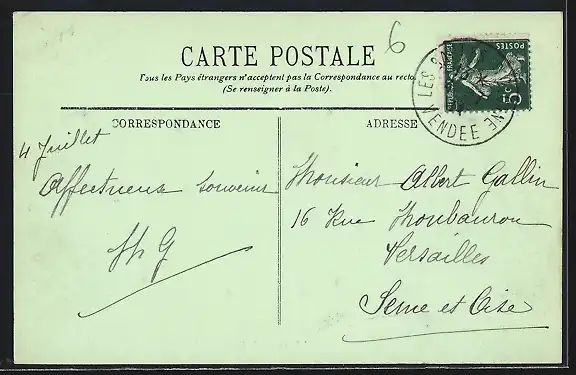 6
CARTE POSTALE
Tous les Pays étrangers n'acceptent pas la Correspondance au recto.
(Se renseigner à la Poste).
POSTES
5c
LES SA
VENDEE
CORRESPONDANCE
4 Juillet
Affectueux souvenir
ADRESSE
Monsieur Albert Gallin
16 Rue
Versailles
Seine et Oise